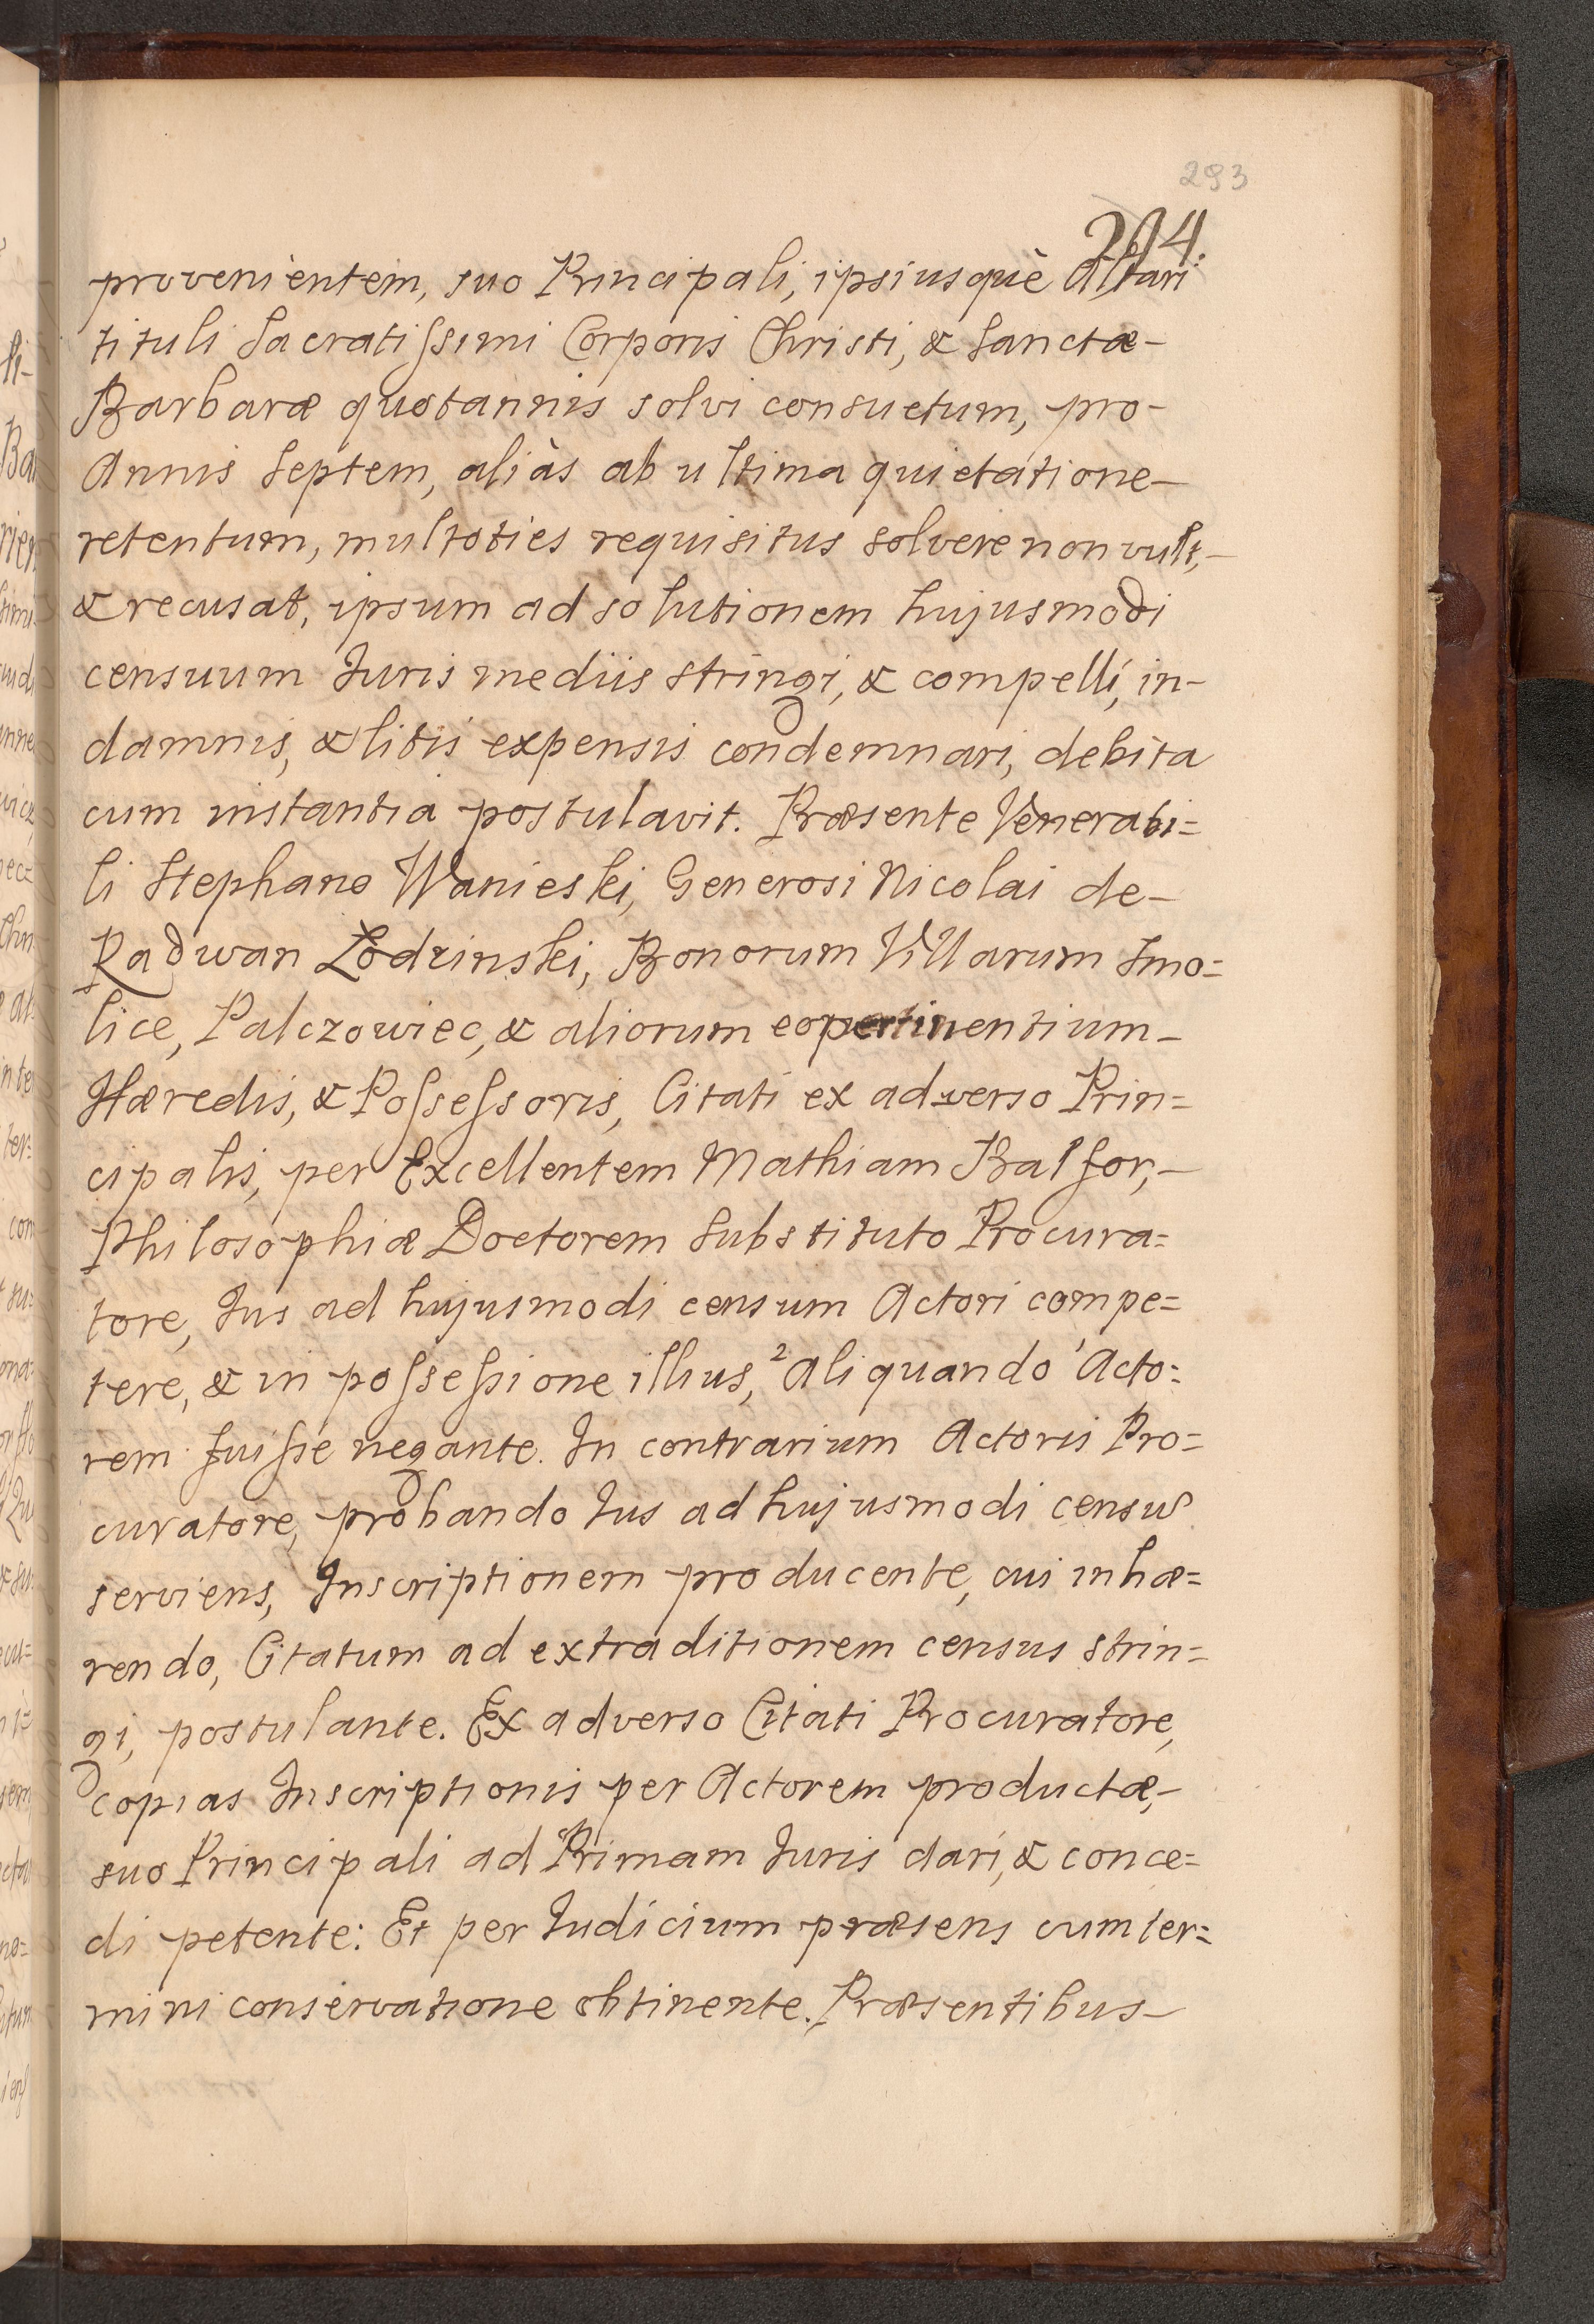 293
294.
provenientem, suo Principali, ipsiusquè Altari
tituli Sacratissimi Corporis Christi, & Sanctæ-
Barbaræ quotannis solvi consuetum, pro-
Annis Septem, aliàs ab ultima quietatione-
retentum, multoties requisitus solvere non vult,-
& recusat, ipsum ad solutionem hujusmodi
censuum Juris mediis stringi, & compelli, in-
damnis, & litis expensis condemnari, debita
cum instantia postulavit. Præsente Venerabi=
li Stephano Wanieski, Generosi Nicolai de-
Radwan Zodzinski, Bonorum Villarum Smo=
lice, Palczowiec, & aliorum eo pertinentium-
Hæredis, & Possessoris, Citati ex adverso Prin=
cipalis, per Excellentem Mathiam Balfor,-
Philosophiæ Doctorem Substituto Procura=
tore, Jus ad hujusmodi censum Actori compe=
tere, & in possessione illius, ²Aliquando ¹Acto=
rem fuisse negante. In contrarium Actoris Pro=
curatore, probando Jus ad hujusmodi censū
serviens, Inscriptionem producente, cui inhæ=
rendo, Citatum ad extraditionem census strin=
gi, postulante. Ex adverso Citati Procuratore,
copias Inscriptionis per Actorem productæ,-
suo Principali ad Primam Juris dari, & conce=
di petente: Et per Judicium præsens cum ter=
mini conservatione obtinente. Præsentibus-